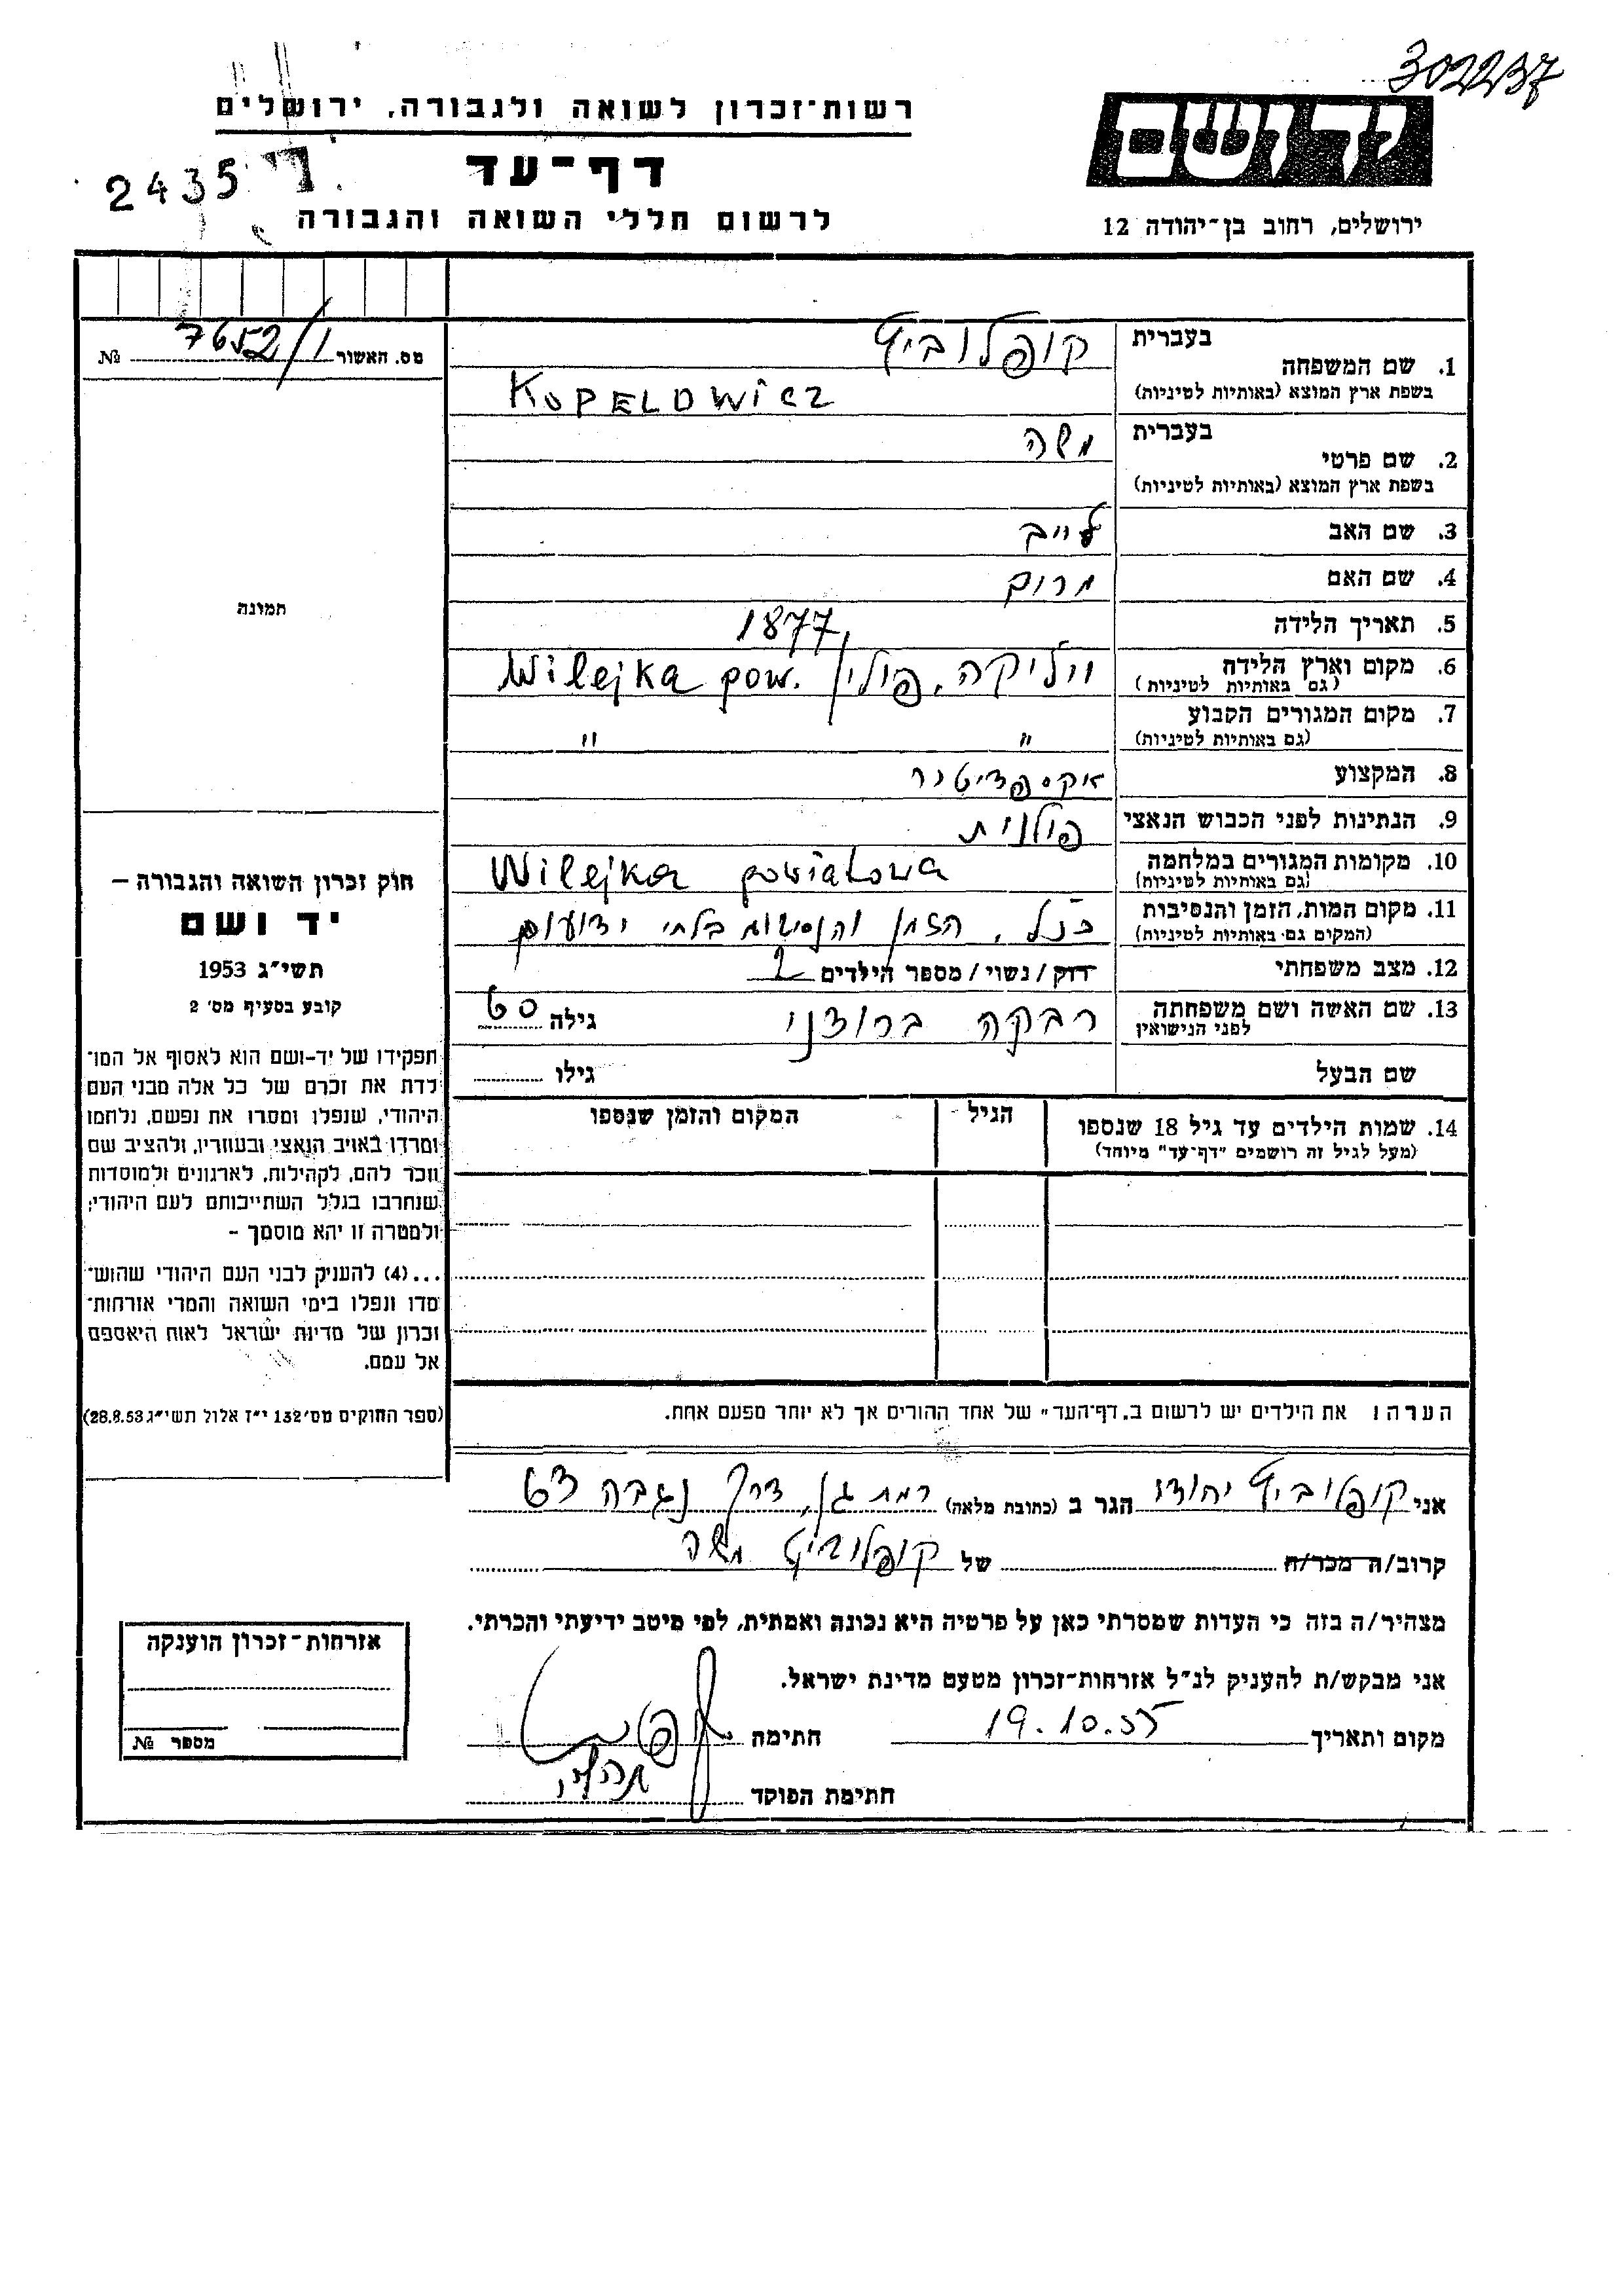 302237
רשות־זכרון לשואה ולגבורה, ירושלים
ידושם
2435
דף־עד
לרשום חללי השואה והגבורה
ירושלים, רחוב בן־יהודה 12
מס. האשור 7652/1 №
תמונה
חוק זכרון השואה והגבורה –
יד ושם
תשי״ג 1953
קובע בסעיף מס׳ 2
תפקידו של יד-ושם הוא לאסוף אל המו־
לדת את זכרם של כל אלה מבני העם
היהודי, שנפלו ומסרו את נפשם, נלחמו
ומרדו באויב הנאצי ובעוזריו, ולהציב שם
וזכר להם, לקהילות, לארגונים ולמוסדות
שנחרבו בגלל השתייכותם לעם היהודי;
ולמטרה זו יהא מוסמך –
...(4) להעניק לבני העם היהודי שהוש־
מדו ונפלו בימי השואה והמרי אזרחות־
זכרון של מדינת ישראל לאות היאספם
אל עמם.
(ספר החוקים מס׳ 132 י״ז אלול תשי״ג 28.8.53)
1. שם המשפחה בעברית קופלוביץ
בשפת ארץ המוצא (באותיות לטיניות) KOPELOWICZ
2. שם פרטי בעברית משה
בשפת ארץ המוצא (באותיות לטיניות)
3. שם האב לייב
4. שם האם
5. תאריך הלידה 1877
6. מקום וארץ הלידה וילייקה, פולין / Wilejka pow.
(גם באותיות לטיניות)
7. מקום המגורים הקבוע " "
(גם באותיות לטיניות)
8. המקצוע אקספדיטור
9. הנתינות לפני הכבוש הנאצי פולנית
10. מקומות המגורים במלחמה Wilejka powiatowa
(גם באותיות לטיניות)
11. מקום המות, הזמן והנסיבות כנ״ל, הזמן והנסיבות בלתי ידועים
(המקום גם באותיות לטיניות)
12. מצב משפחתי רוק/נשוי/מספר הילדים 2
13. שם האשה ושם משפחתה רבקה ברודני גילה 60
לפני הנישואין
שם הבעל גילו
14. שמות הילדים עד גיל 18 שנספו הגיל המקום והזמן שנספו
(מעל לגיל זה רושמים "דף־עד" מיוחד)
הערה! את הילדים יש לרשום ב„דף־העד" של אחד ההורים אך לא יותר מפעם אחת.
אני קופלוביץ הגר ב (כתובת מלאה) רמת גן, דרך נגבה
קרוב/ה מכר/ה של קופלוביץ משה
מצהיר/ה בזה כי העדות שמסרתי כאן על פרטיה היא נכונה ואמתית, לפי מיטב ידיעתי והכרתי.
אני מבקש/ת להעניק לנ״ל אזרחות־זכרון מטעם מדינת ישראל.
מקום ותאריך 19.10.55 חתימה
חתימת הפוקד
אזרחות־זכרון הוענקה
מספר №